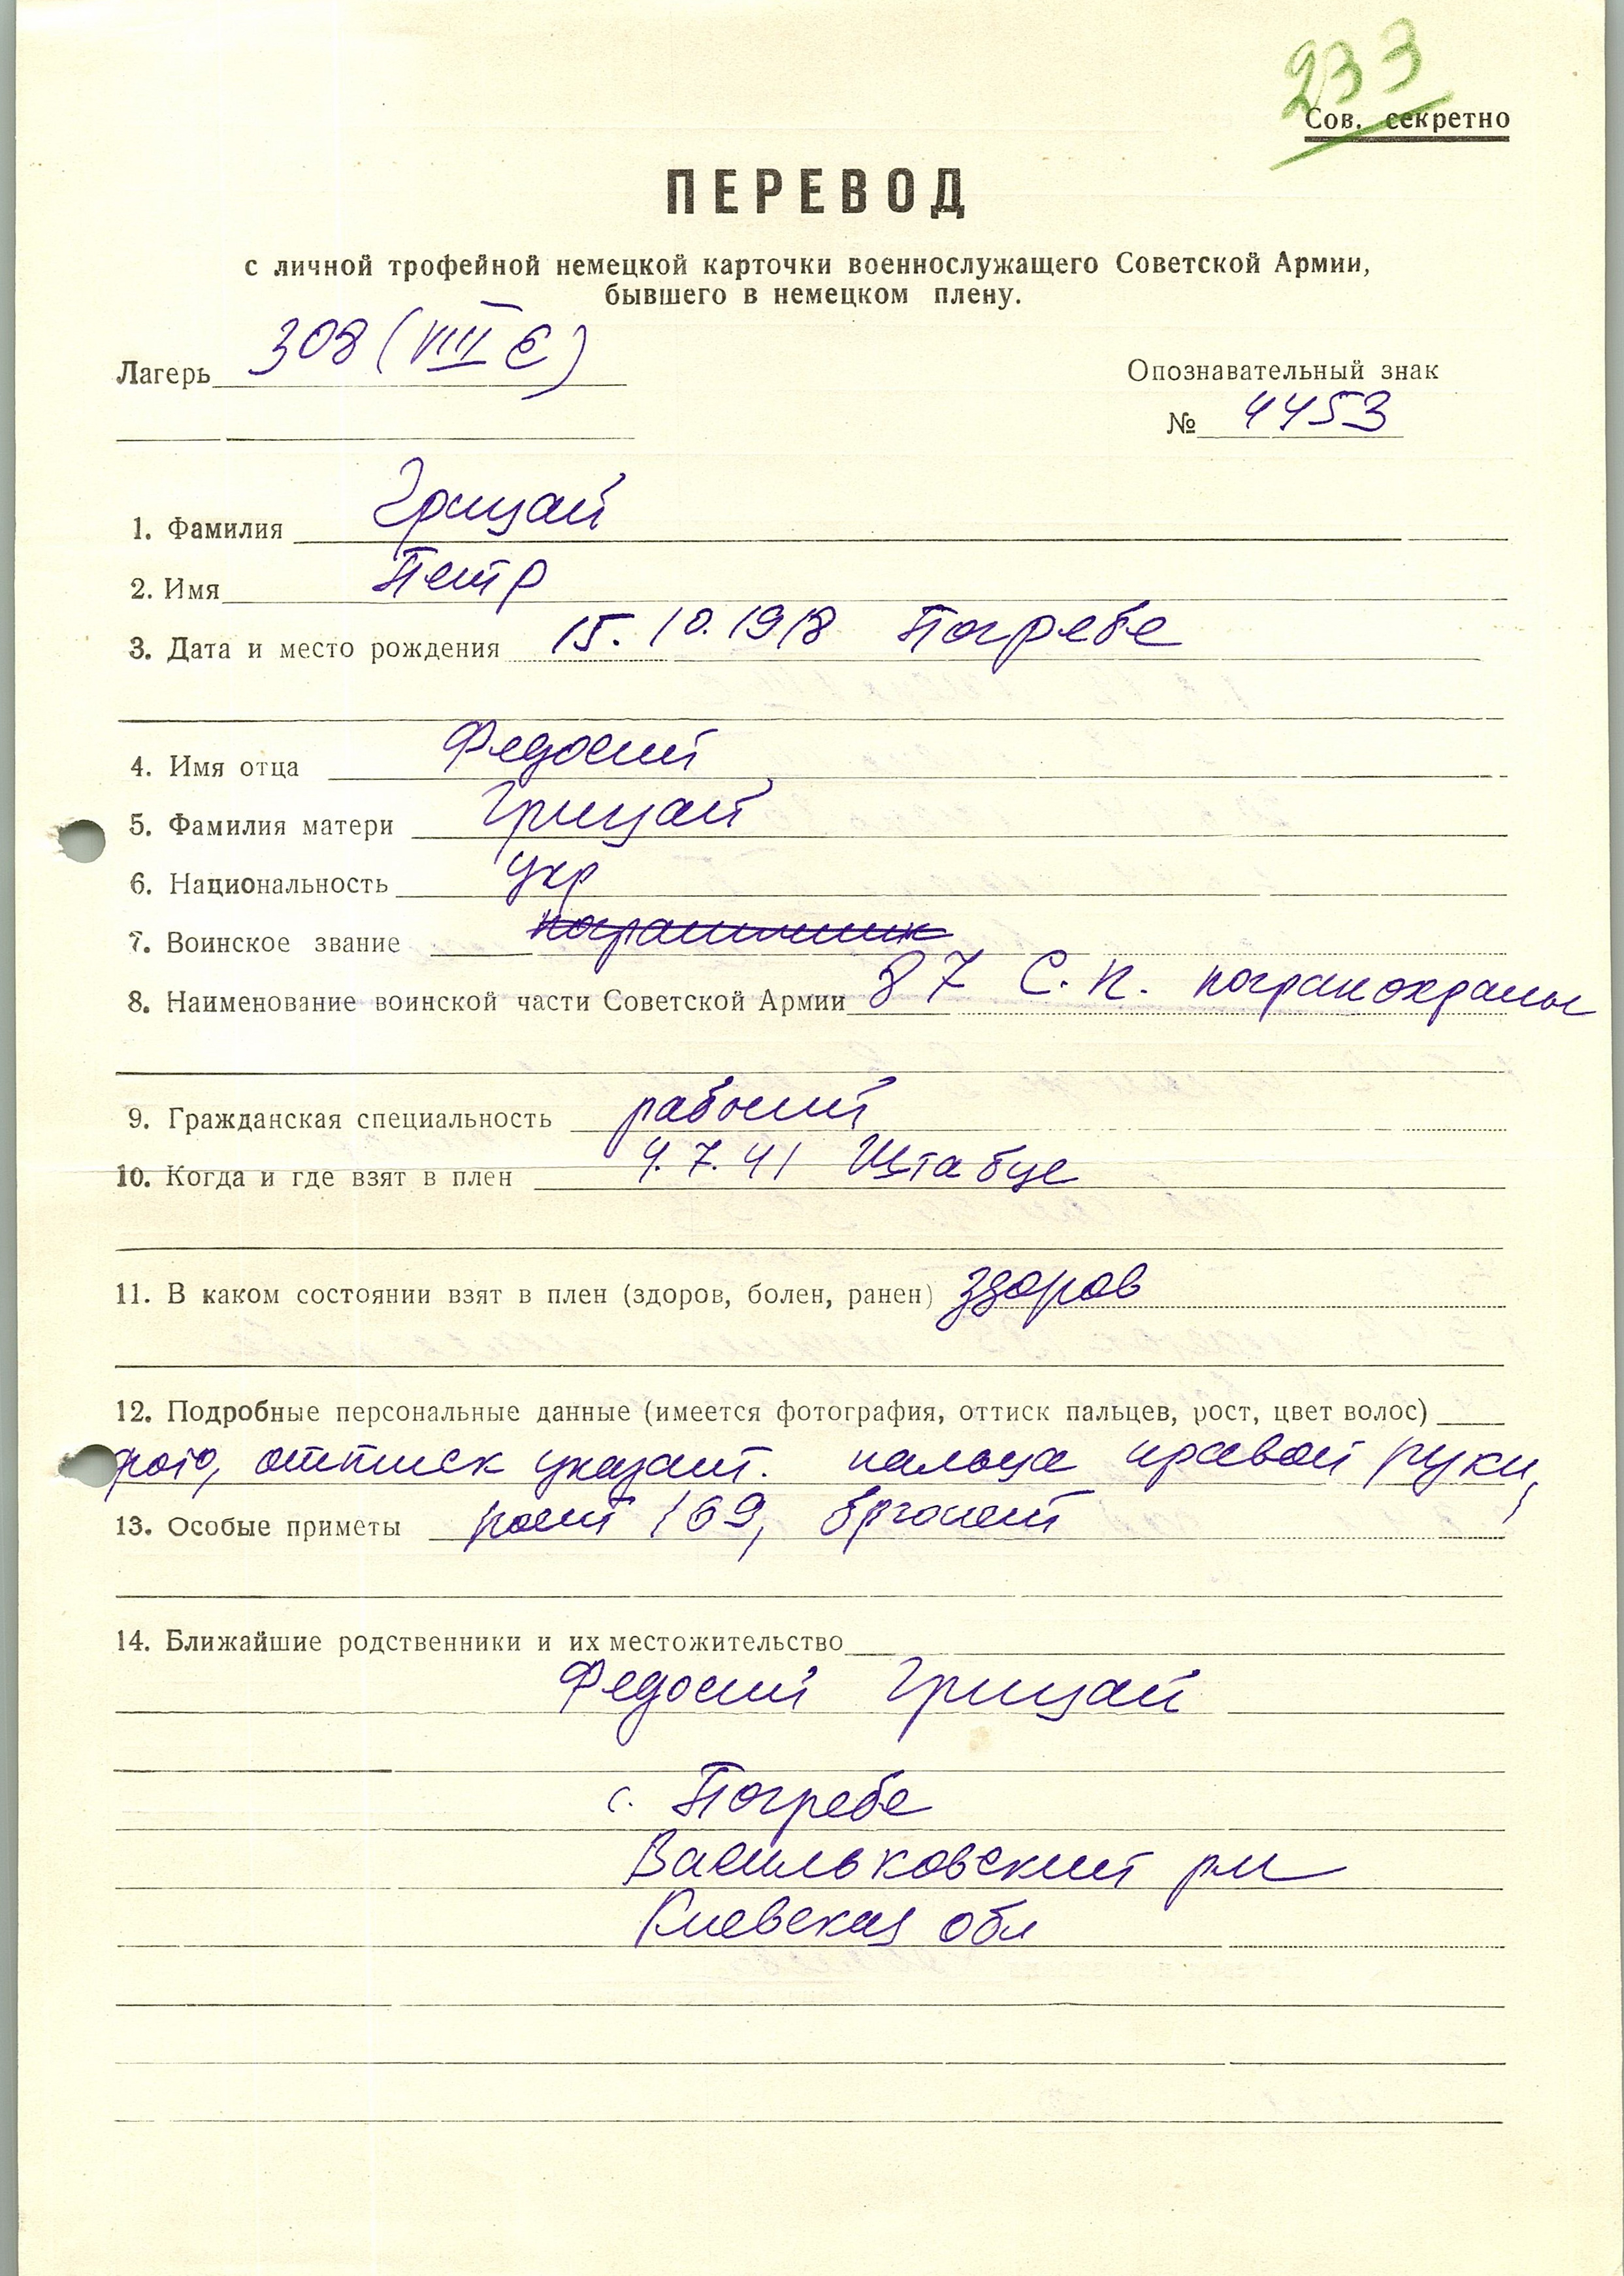 233
Сов. секретно
ПЕРЕВОД
с личной трофейной немецкой карточки военнослужащего Советской Армии,
бывшего в немецком плену.
Лагерь 308 (VIII E)
Опознавательный знак
№ 4453
1. Фамилия Грицай
2. Имя Петр
3. Дата и место рождения 15.10.1918 Погребе
4. Имя отца Федосий
5. Фамилия матери Грицай
6. Национальность укр
7. Воинское звание пограничник
8. Наименование воинской части Советской Армии 87 С.п. погранохраны
9. Гражданская специальность рабочий
10. Когда и где взят в плен 4.7.41 Штабце
11. В каком состоянии взят в плен (здоров, болен, ранен) здоров
12. Подробные персональные данные (имеется фотография, оттиск пальцев, рост, цвет волос)
фото, оттиск указат. пальца правой руки,
13. Особые приметы рост 169, брюнет
14. Ближайшие родственники и их местожительство
Федосий Грицай
с. Погребе
Васильковский рн
Киевская обл